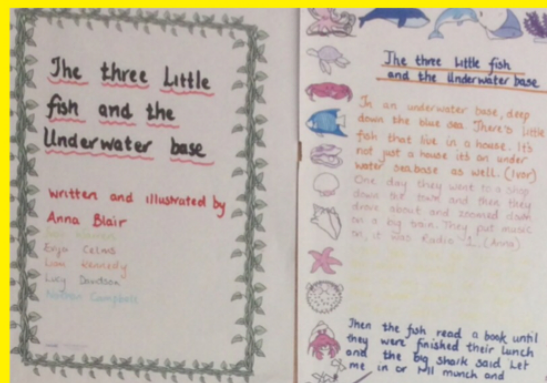 The three Little
fish and the
Underwater base
written and illustrated by
Anna Blair
Enya Celms
Liam Kennedy
Lucy Davidson
Nathan Campbell
The three Little fish
and the Underwater base
In an underwater base, deep
down the blue sea. There's little
fish that live in a house. It's
not just a house it's an under
water seabase as well. (Ivor)
One day they went to a shop
down the town and then they
drove about and zoomed down
on a big train. They put music
on, it was Radio 1. (Anna)
Then the fish read a book until
they were finished their lunch
and the big shark said Let
me in or I'll munch and